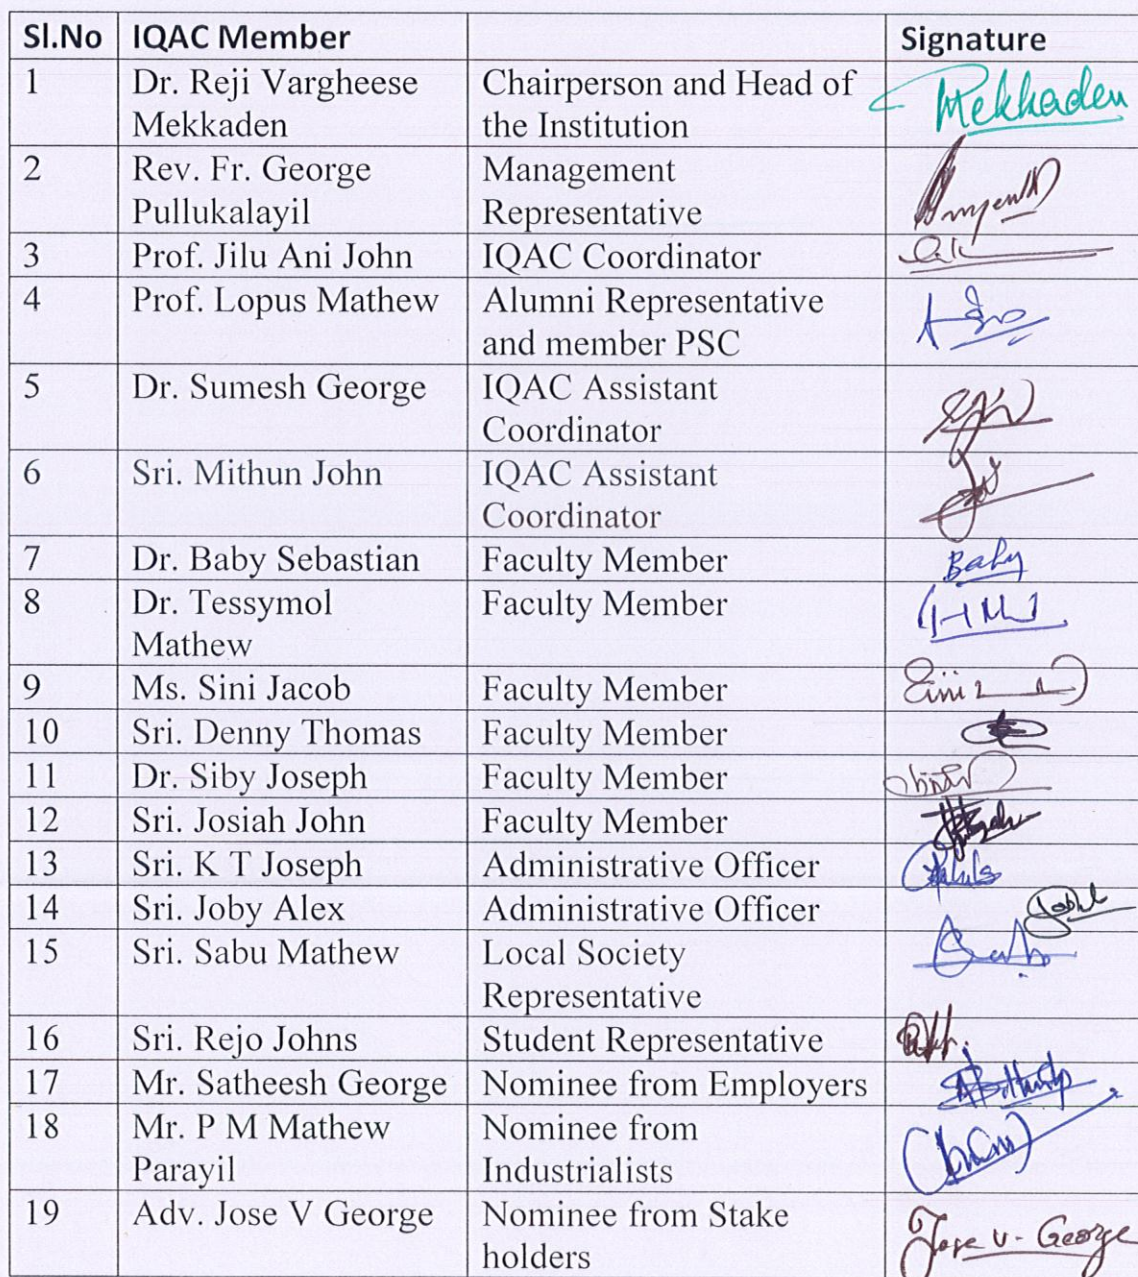 Sl.No IQAC Member Signature
1 Dr. Reji Vargheese Chairperson and Head of Mekkaden
Mekkaden the Institution
2 Rev. Fr. George Management
Pullukalayil Representative
3 Prof. Jilu Ani John IQAC Coordinator
4 Prof. Lopus Mathew Alumni Representative
and member PSC
5 Dr. Sumesh George IQAC Assistant
Coordinator
6 Sri. Mithun John IQAC Assistant
Coordinator
7 Dr. Baby Sebastian Faculty Member Baby
8 Dr. Tessymol Faculty Member
Mathew
9 Ms. Sini Jacob Faculty Member
10 Sri. Denny Thomas Faculty Member
11 Dr. Siby Joseph Faculty Member
12 Sri. Josiah John Faculty Member
13 Sri. K T Joseph Administrative Officer
14 Sri. Joby Alex Administrative Officer
15 Sri. Sabu Mathew Local Society
Representative
16 Sri. Rejo Johns Student Representative
17 Mr. Satheesh George Nominee from Employers
18 Mr. P M Mathew Nominee from
Parayil Industrialists
19 Adv. Jose V George Nominee from Stake Jose V. George
holders